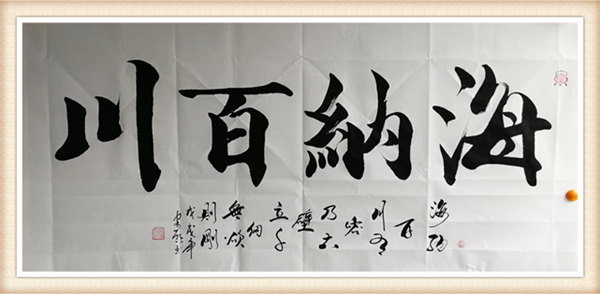 海納百川
海納
百
川有
容
乃大
壁
立千
仞
無欲
則剛
戊戌年